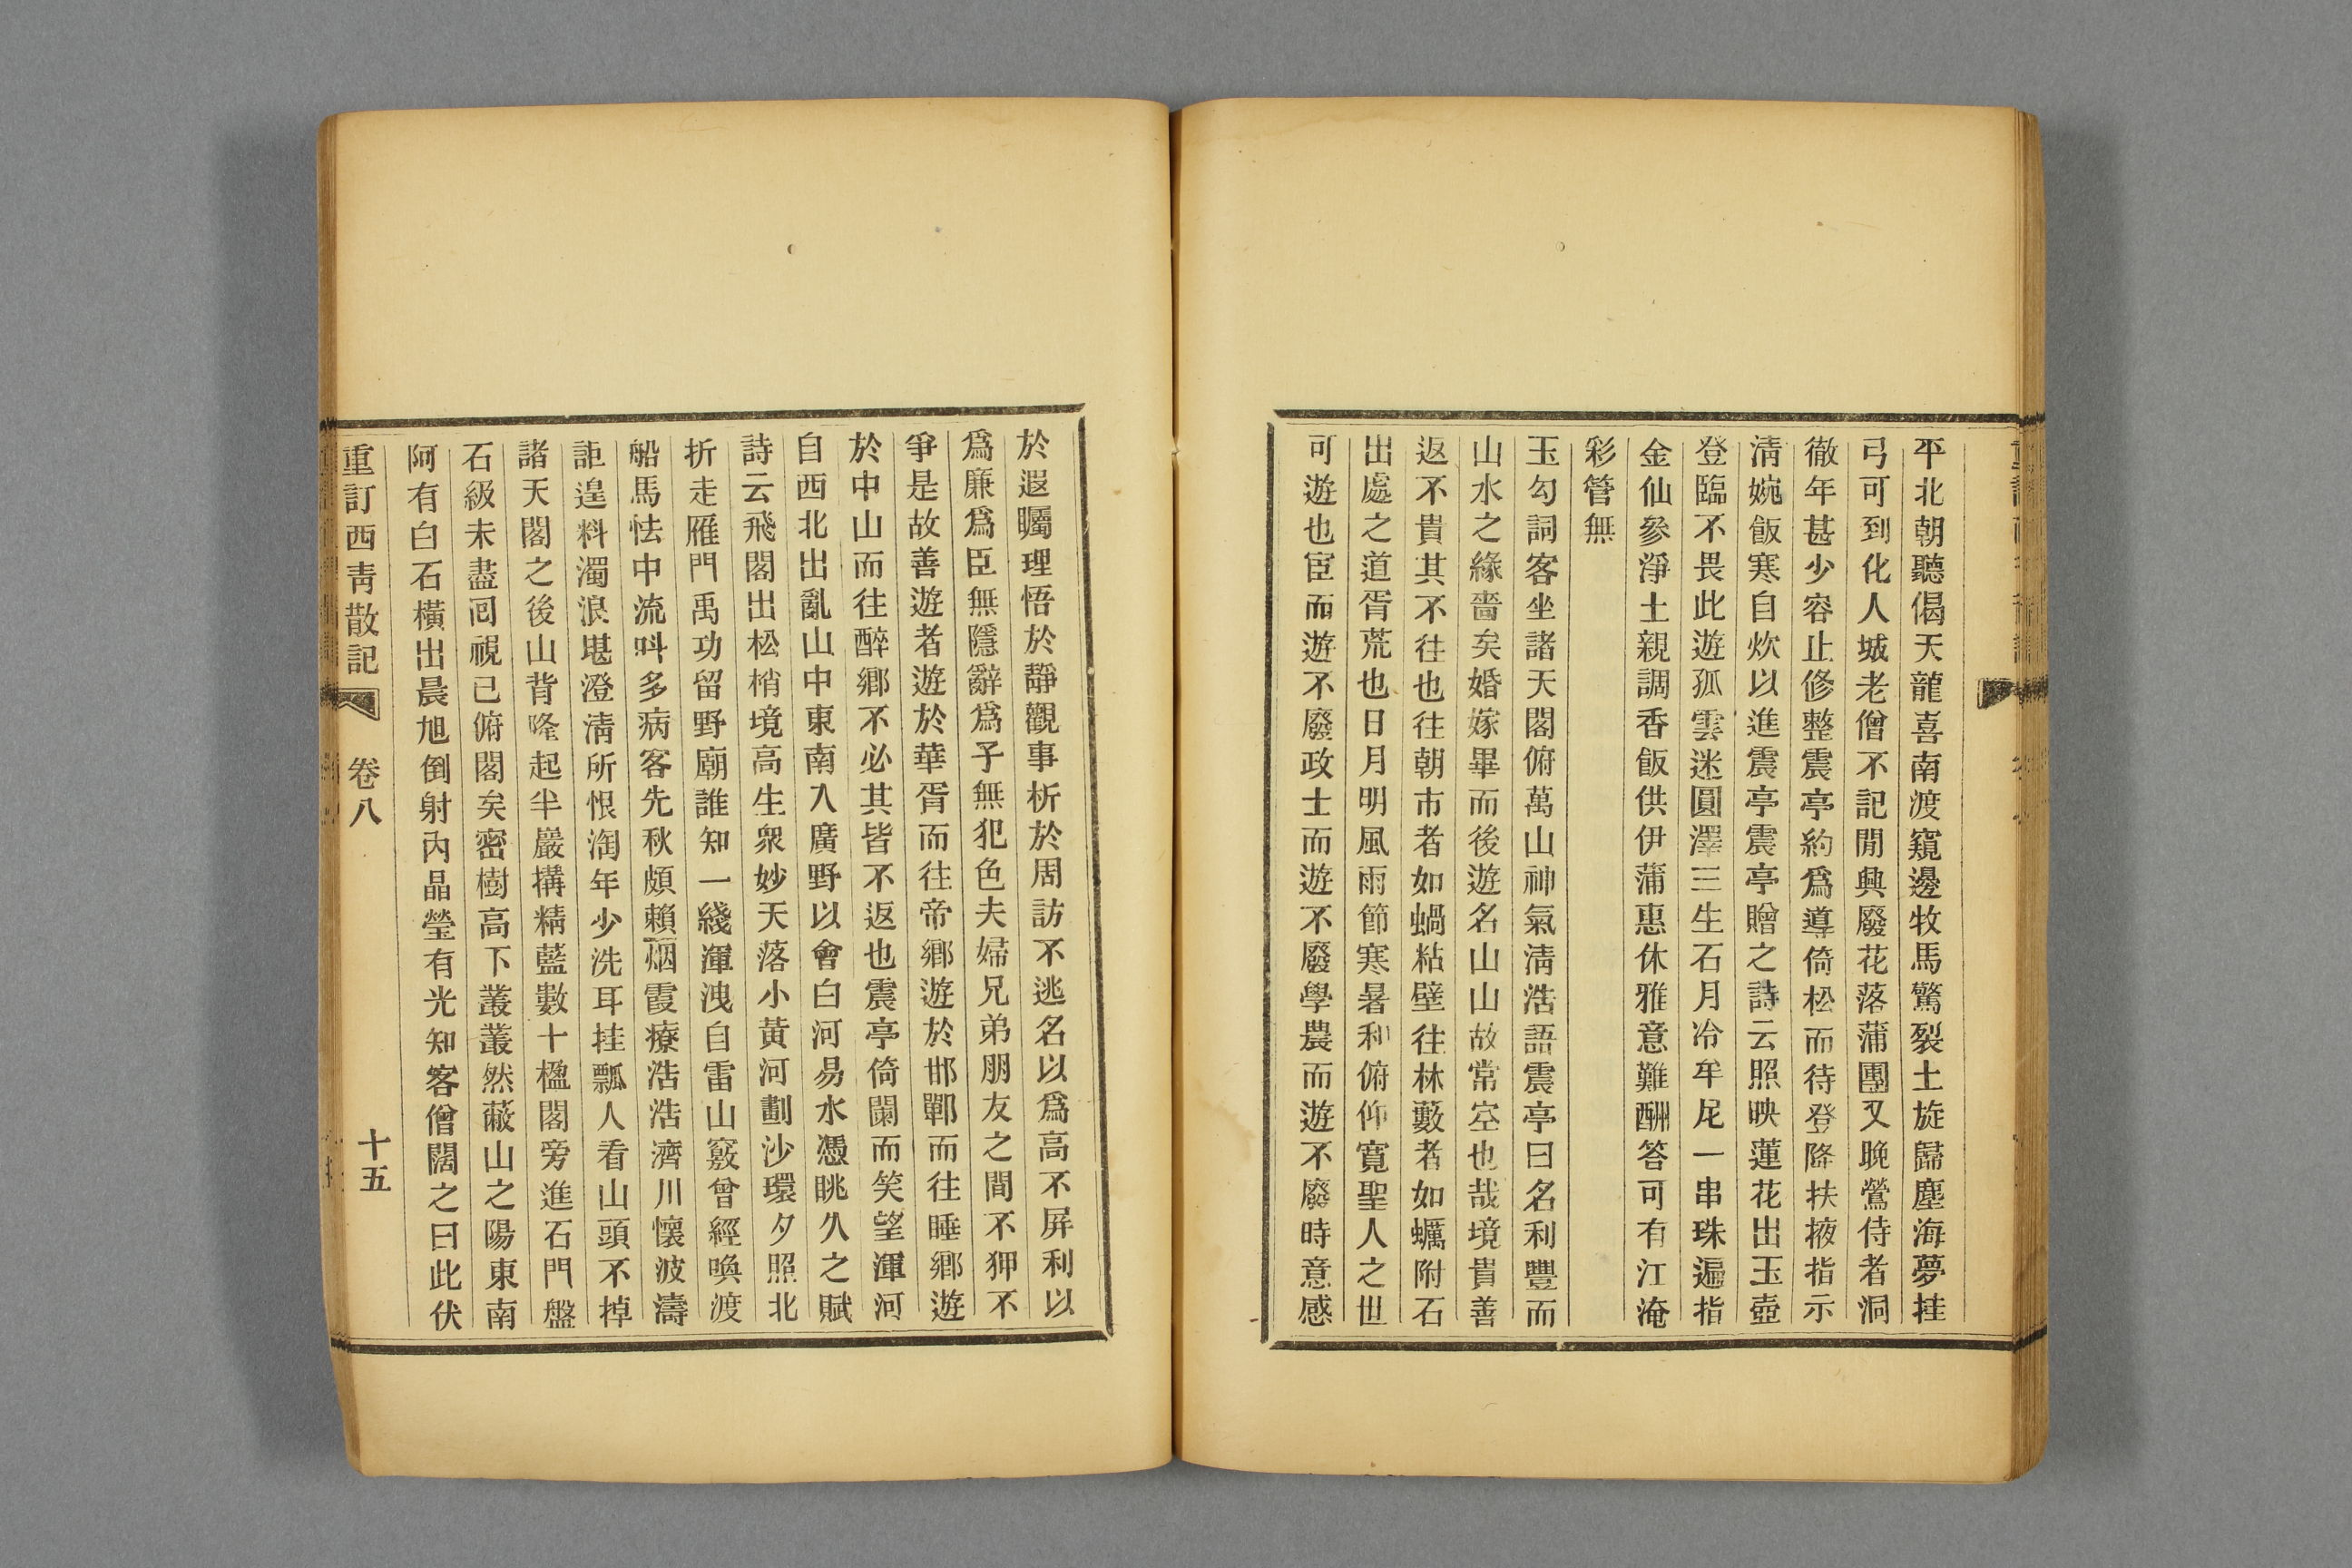 平北朝聽偈天龍喜南渡窺邊牧馬驚裂土旋歸塵海夢挂
弓可到化人城老僧不記閒興廢花落蒲團又晚鶯侍者洞
徹年甚少容止修整震亭約爲導倚松而待登降扶掖指示
清婉飯寒自炊以進震亭震亭贈之詩云照映蓮花出玉壺
登臨不畏此遊孤雲迷圓澤三生石月冷牟尼一串珠遍指
金仙參淨土親調香飯供伊蒲惠休雅意難酬答可有江淹
彩管無
玉勾詞客坐諸天閣俯萬山神氣清浩語震亭曰名利豐而
山水之緣嗇矣婚嫁畢而後遊名山山故常空也哉境貴善
返不貴其不往也往朝市者如蝸粘壁往林藪者如蠣附石
出處之道胥荒也日月明風雨節寒暑和俯仰寬聖人之世
可遊也宦而遊不廢政士而遊不廢學農而遊不廢時意感
於遐矚理悟於靜觀事析於周訪不逃名以爲高不屏利以
爲廉爲臣無隱辭爲子無犯色夫婦兄弟朋友之間不狎不
爭是故善遊者遊於華胥而往帝鄉遊於邯鄲而往睡鄉遊
於中山而往醉鄉不必其皆不返也震亭倚闌而笑望渾河
自西北出亂山中東南入廣野以會白河易水憑眺久之賦
詩云飛閣出松梢境高生衆妙天落小黃河劃沙環夕照北
折走雁門禹功留野廟誰知一綫渾洩自雷山竅曾經喚渡
船馬怯中流呌多病客先秋頗賴烟霞療浩浩濟川懷波濤
詎遑料濁浪堪澄清所恨淘年少洗耳挂瓢人看山頭不掉
諸天閣之後山背隆起半巖搆精藍數十楹閣旁進石門盤
石級未盡囘視已俯閣矣密樹高下叢叢然蔽山之陽東南
阿有白石橫出晨旭倒射內晶瑩有光知客僧闊之曰此伏
重訂西青散記 卷八 十五